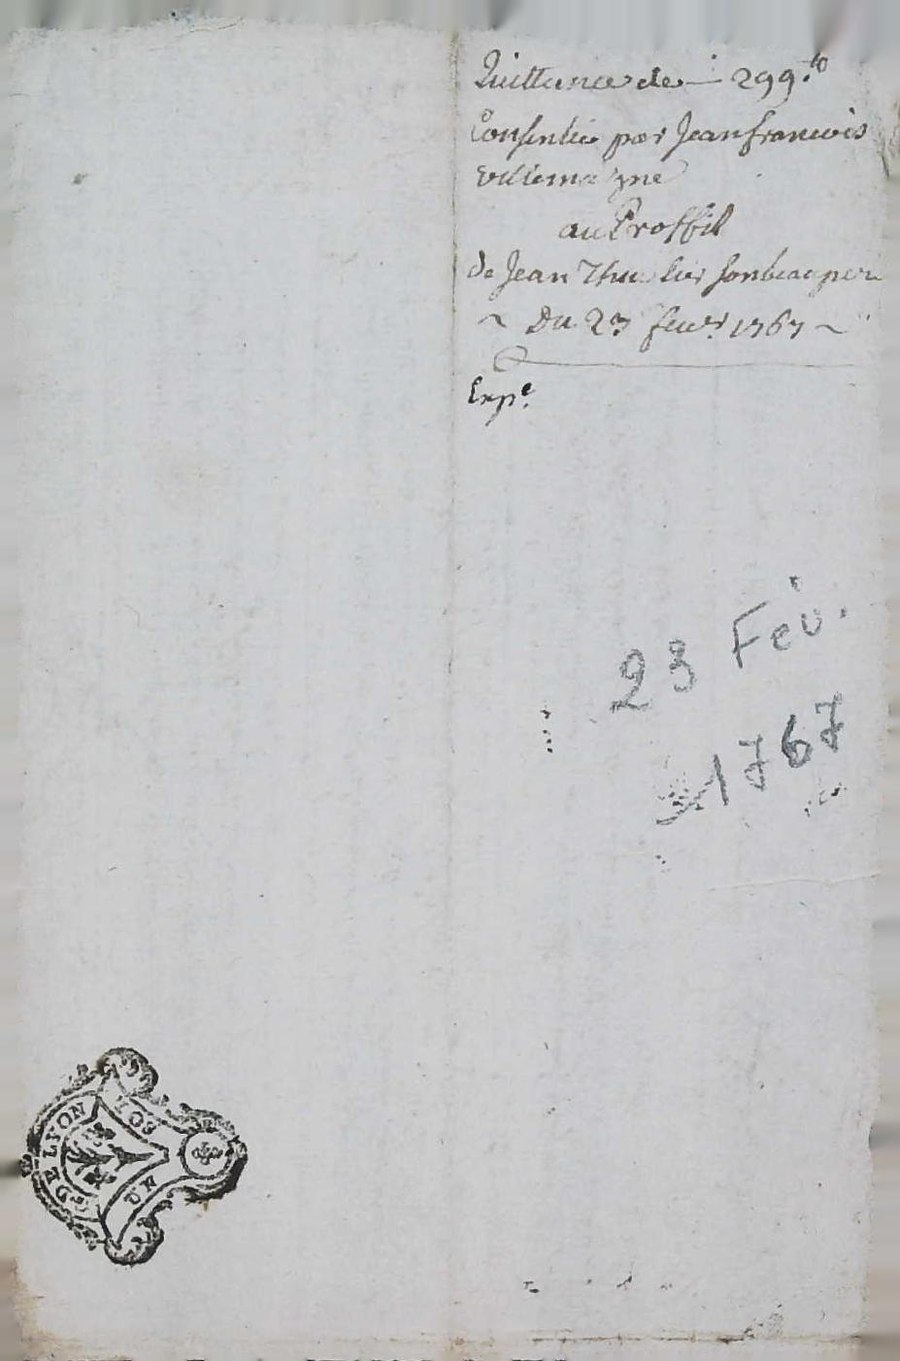 Quittance de 299 tt
Consentie par Jean francois
Villemagne
au Proffit
de Jean son beaupere
~ Du 23 fevr. 1767 ~
Exp.e
23 Fev.
1767
G DE LYON
UN SOL